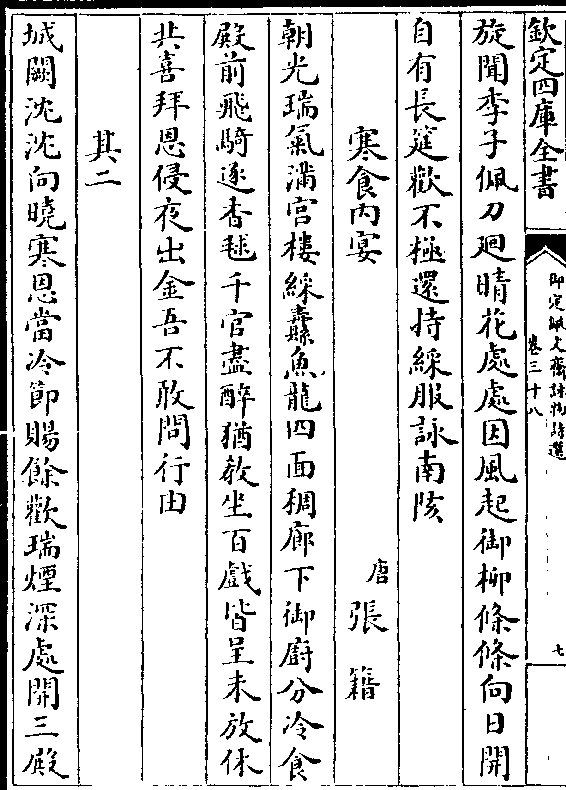 欽定四庫全書
御定佩文齋詠物詩選
卷三十八
七
旋聞季子佩刀廻晴花處處因風起御柳條條向日開
自有長筵歡不極還持綵服詠南陔
寒食内宴
唐張籍
朝光瑞氣滿宮樓綵纛魚龍四面稠廊下御廚分冷食
殿前飛騎逐香毬千官盡醉猶教坐百戲皆呈未放休
共喜拜恩侵夜出金吾不敢問行由
其二
城闕沈沈向曉寒恩當冷節賜餘歡瑞煙深處開三殿